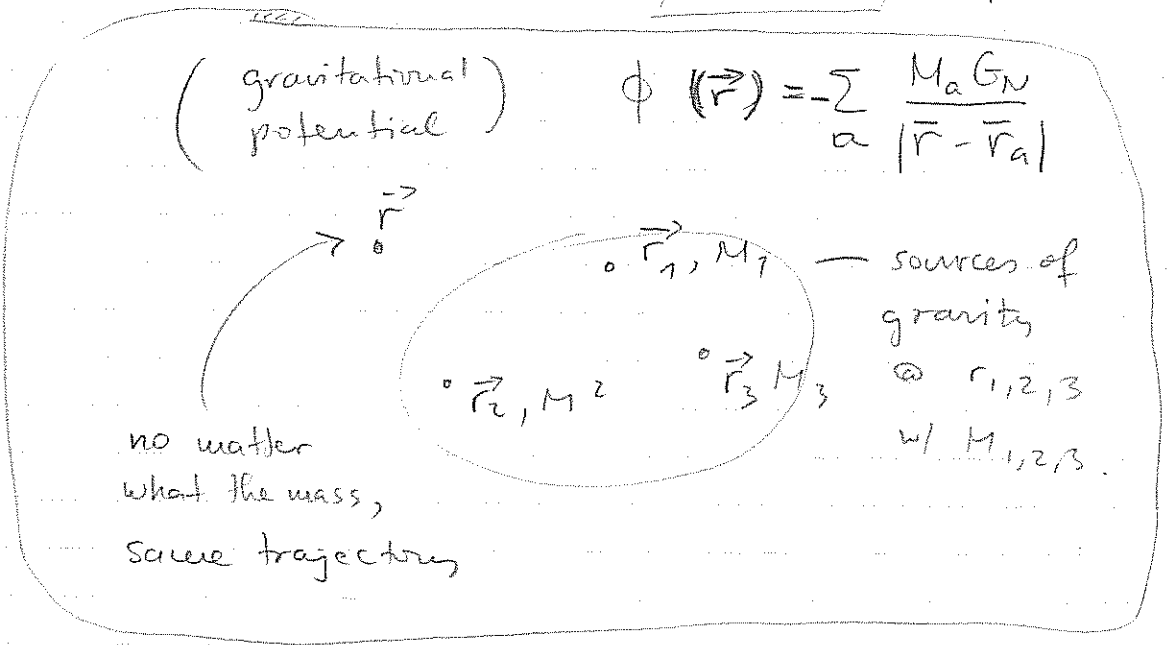 (gravitational potential) ϕ (r⃗) = -∑_a M_a G_N / |r̄ - r̄_a|
r⃗
r⃗₁, M₁ — sources of
gravity
r⃗₂, M² r⃗₃ M₃ @ r₁,₂,₃
no matter w/ M₁,₂,₃.
what the mass,
same trajectory